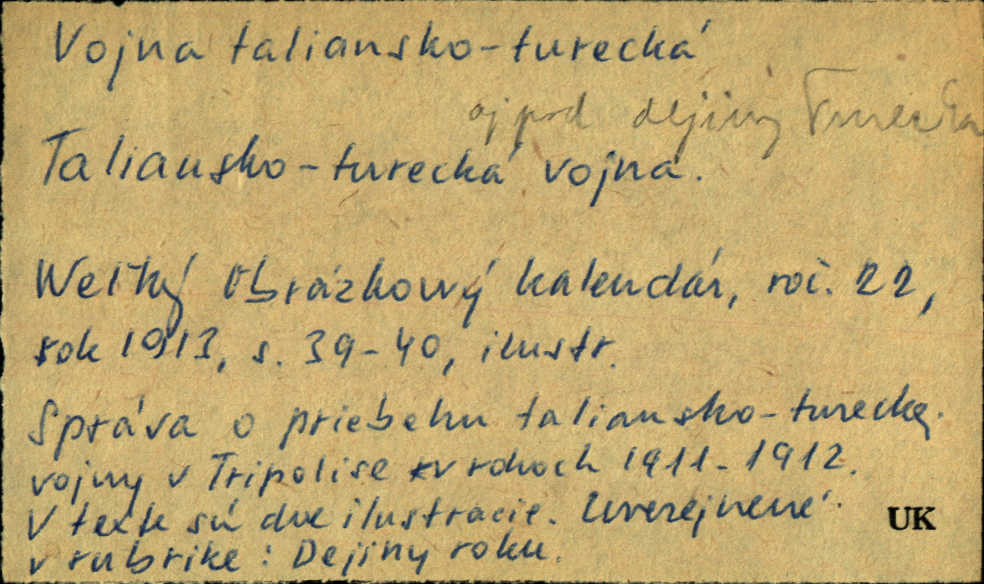 Vojna taliansko-turecká
aj pod dejiny Turecka
Taliansko-turecká vojna.
Weľký Obrázkový kalendár, roč. 22,
rok 1913, s. 39-40, ilustr.
Správa o priebehu taliansko-tureckej
vojny v Tripolise v rokoch 1911-1912.
V texte sú dve ilustracie. Uverejnené
v rubrike: Dejiny roku.
UK